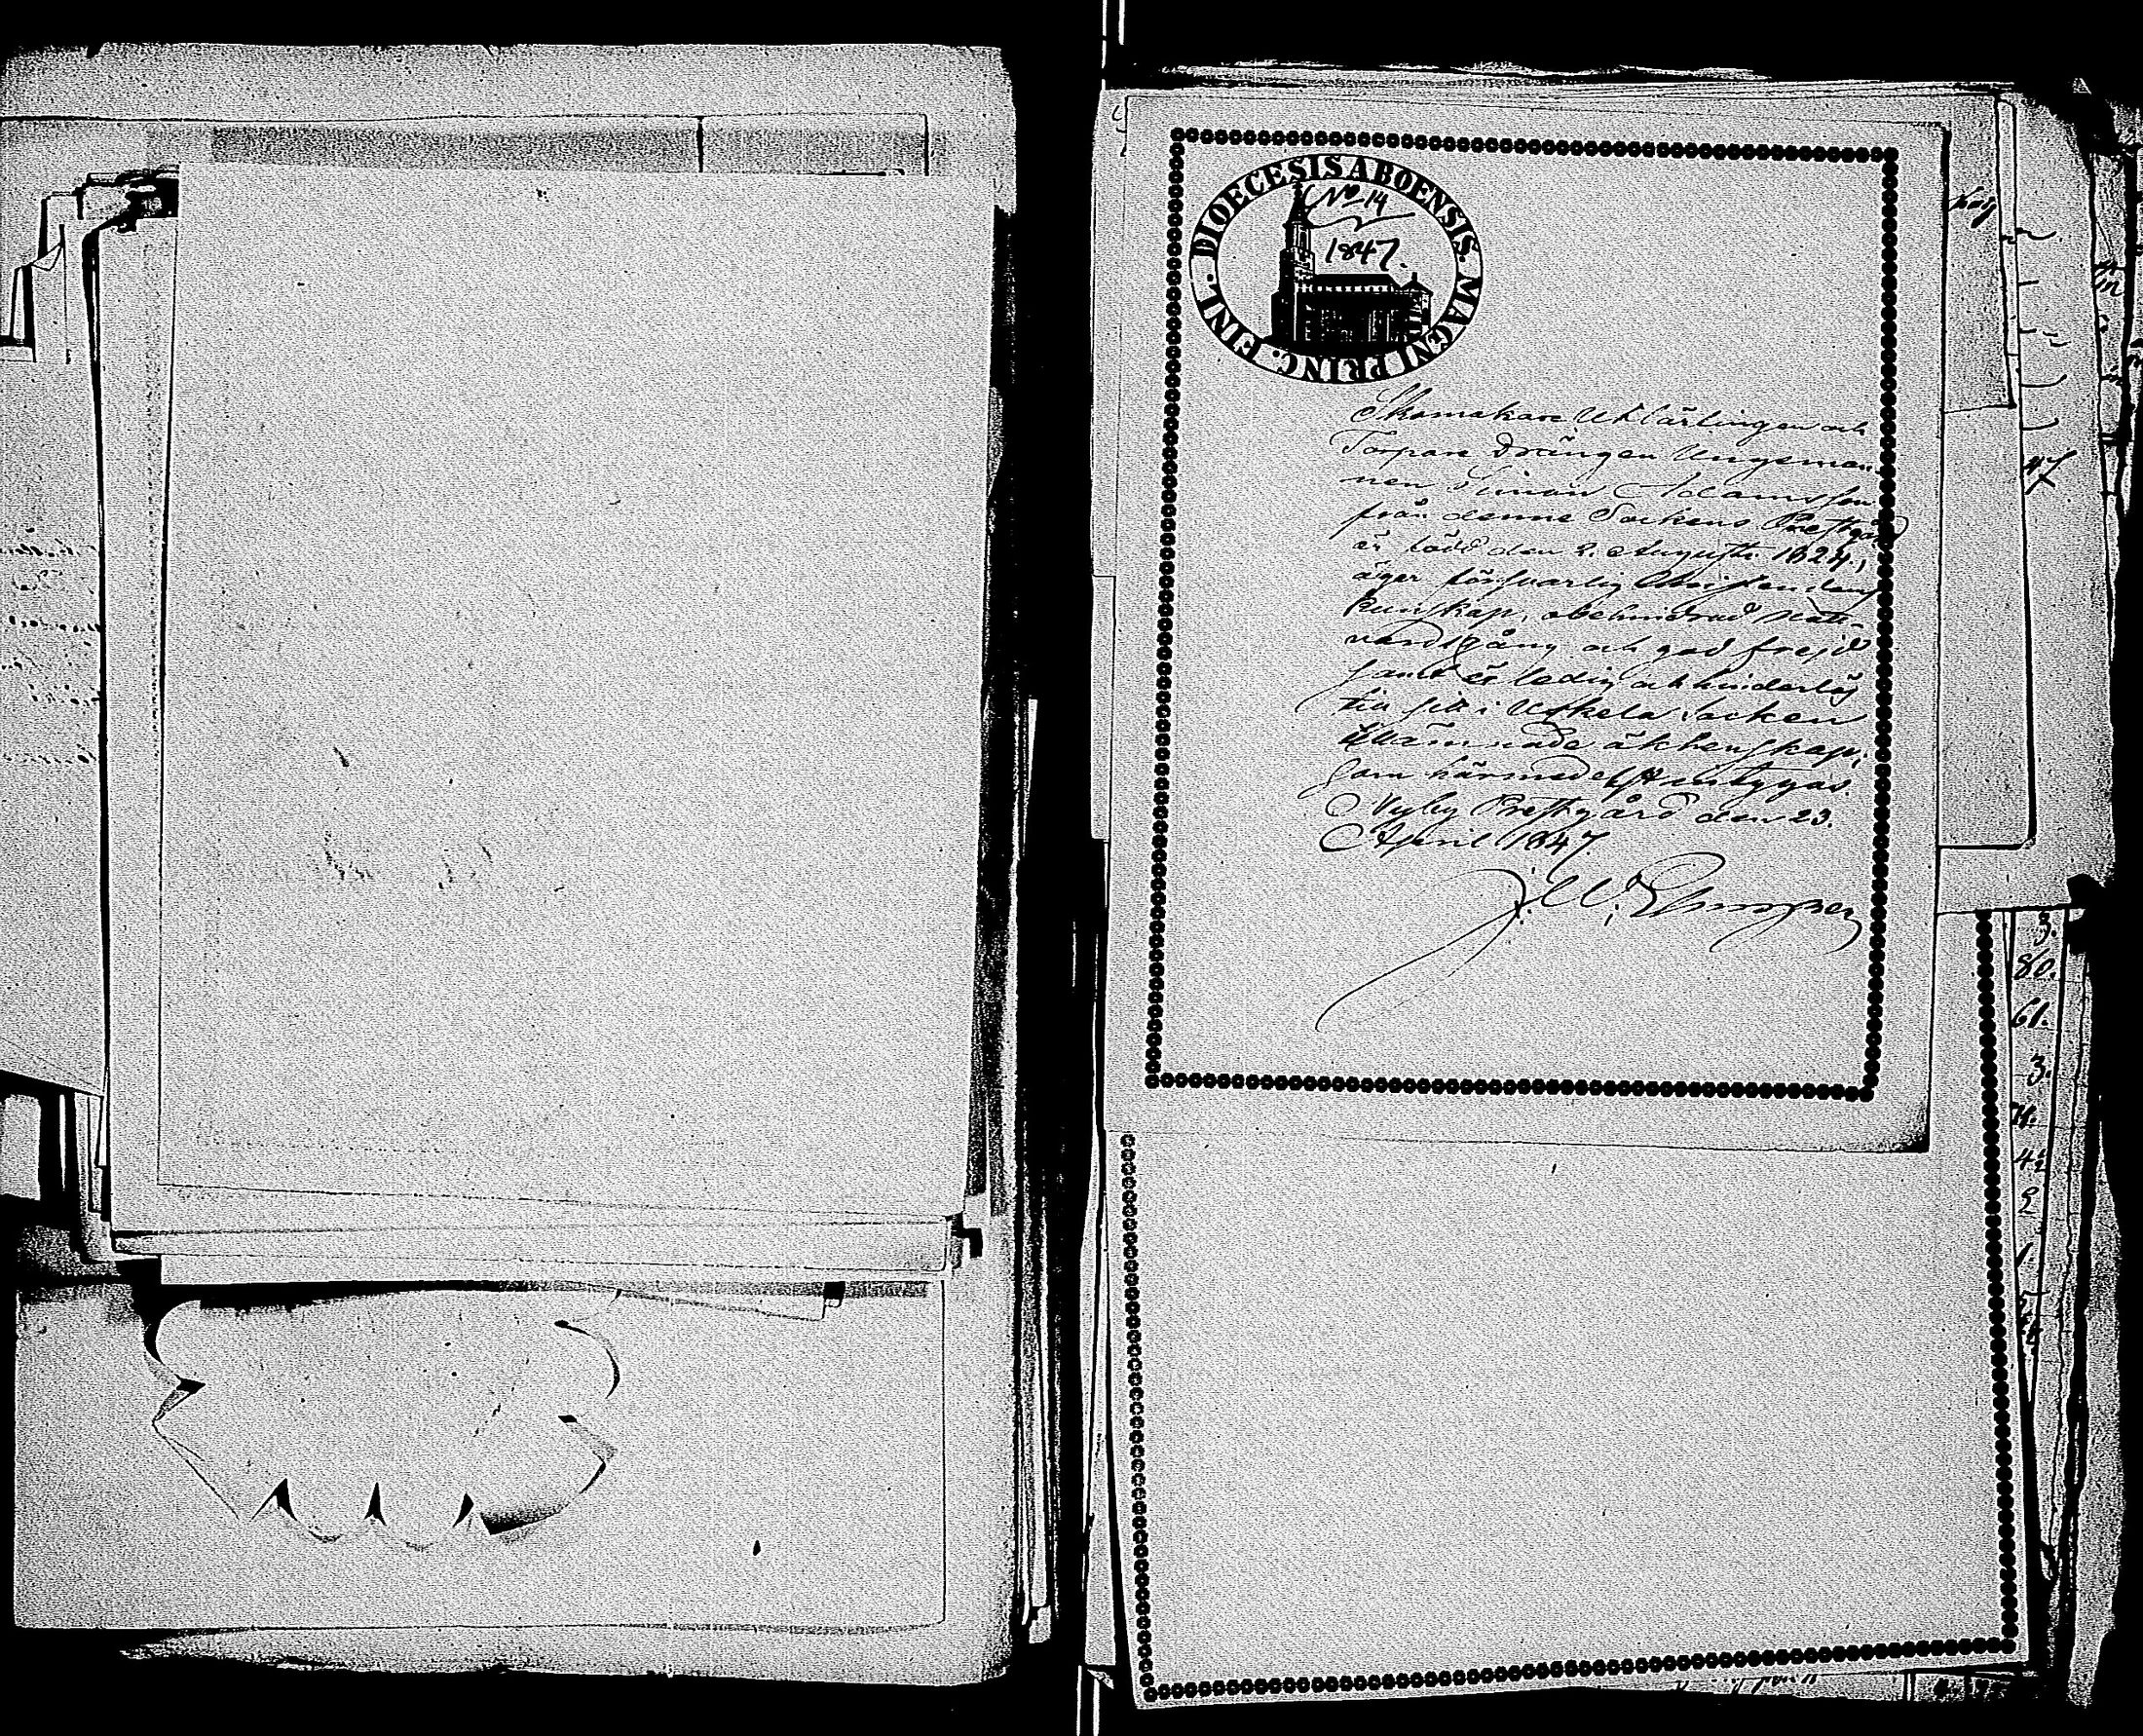 DIOECESIS ABOENSIS. MAGNI PRINC. FINL.
No 14
1847.
Skomakare Utlärlingen och
Torpare Drängen Ungeman-
nen Simon Adamsson
från denne Sockens Prestgård
är född den 2. Augusti 1824,
äger försvarlig Christendoms
kunskap, obehindrad Natt-
vardsgång och god frejd
samt är ledig och hinderlös
till sitt i Uskela Socken
ämnade äktenskap;
som härmedelst intygas.
Prestgård den 23.
April 1847.
J. W.
47
80.
61.
3.